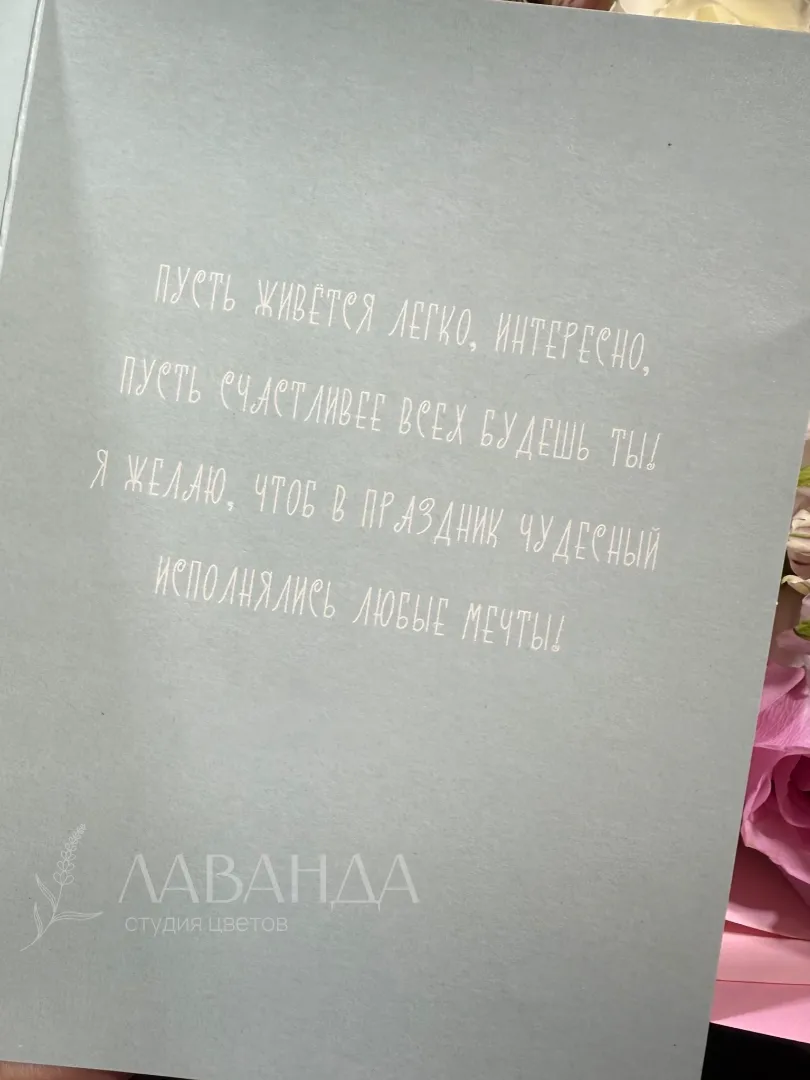 ПУСТЬ ЖИВЁТСЯ ЛЕГКО, ИНТЕРЕСНО,
ПУСТЬ СЧАСТЛИВЕЕ ВСЕХ БУДЕШЬ ТЫ!
Я ЖЕЛАЮ, ЧТОБ В ПРАЗДНИК ЧУДЕСНЫЙ
ИСПОЛНЯЛИСЬ ЛЮБЫЕ МЕЧТЫ!
ЛАВАНДА
СТУДИЯ ЦВЕТОВ